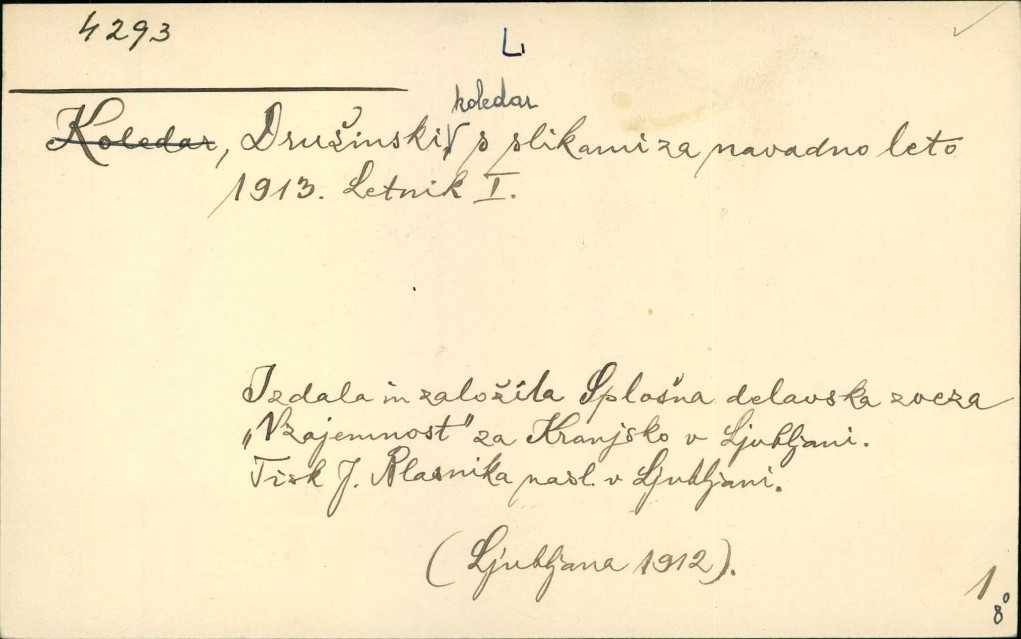 4293
L
koledar
Koledar, Društinski s slikami za navadno leto
1913. Letnik I.
Izdala in založila Splošna delavska zveza
„Vzajemnost" za Kranjsko v Ljubljani.
Tisk J. Blasnika nasl. v Ljubljani.
(Ljubljana 1912).
1
8°